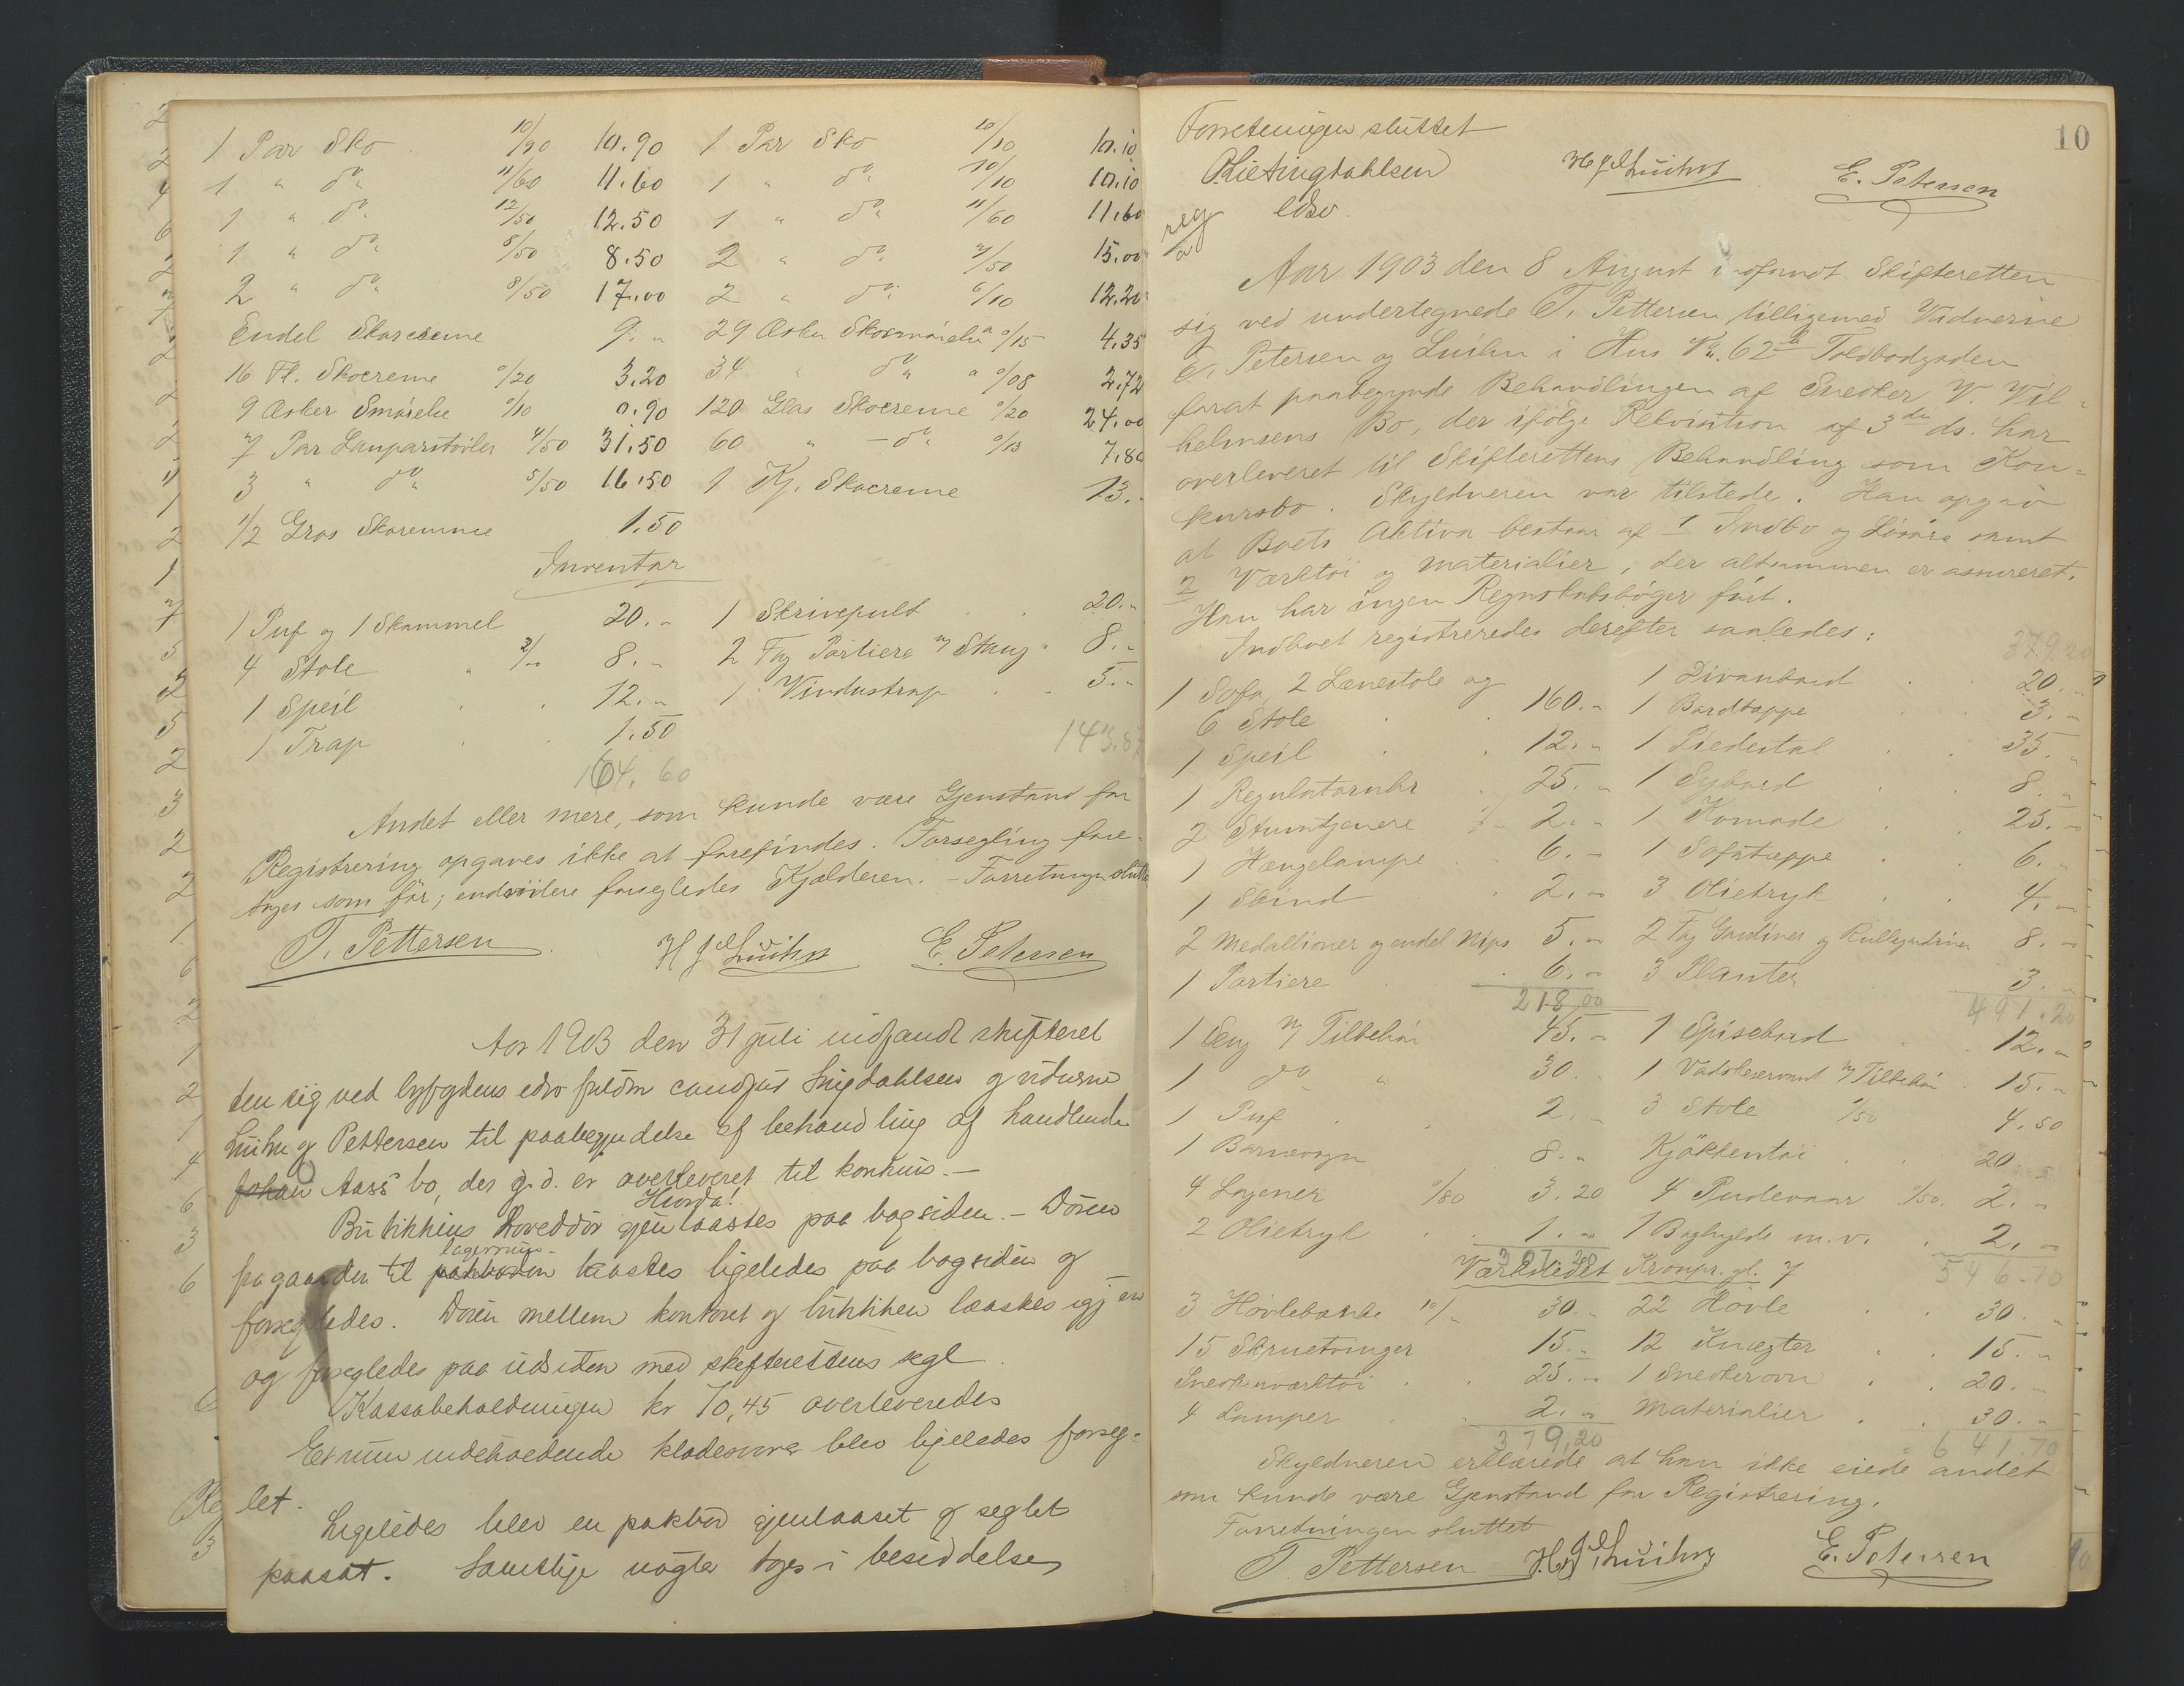 1 Par Sko 10/90 10.90 1 Par Sko 10/10 10.10
1 " do " 11/60 11.60 1 " do " 10/10 10.10
1 " do " 12/50 12.50 1 " do " 11/60 11.60
1 " do " 8/50 8.50 2 " do " 7/50 15.00
2 " do " 8/50 17.00 2 " do " 6/10 12.20
Endel Skocreme 9. " 29 Æsker Skosmørelse a 0/15 4.35
16 Fl. Skocreme 0/20 3.20 34 " do " a 0/08 2.72
9 Æsker Smørelse 0/10 0.90 120 Glas Skocreme 0/20 24.00
7 Par Lauparstøvler 4/50 31.50 60 " — do " 0/13 7.80
3 " do " 5/50 16.50 1 Kj. Skocreme 13. "
1/2 Gros Skoremme 1.50
Inventar
1 Puf og 1 Skammel 20. " 1 Skrivepult 20. "
4 Stole " 2/" 8. " 2 Fag Portiere m/ Stang " 8. "
1 Speil 12. " 1 Vindustrap 5. "
1 Trap 1.50
164.60 143.87
Andet eller mere, som kunde være Gjenstand for
Registrering opgaves ikke at forefindes. Forsegling fore-
toges som før; endvidere forsegledes Kjælderen. — Forretningen sluttet
T. Pettersen H J Luihn E. Petersen
Aar 1903 den 31 juli indfandt skifteret
ten sig ved byfogdens edsv fuldm cand jur Lingdahlsen og vidnerne
Luihn og Pettersen til paabegyndelse af behandling af handlende
Johan Aass bo, der g. d. er overleveret til konkurs. —
Hvorda!
Butikkens hoveddør gjenlaastes paa bagsiden. — Døren
lagerrum
fra gaarden til pakboden laastes ligeledes paa bagsiden og
forsegledes. Døren mellem kontoret og butikken laastes igjen
og forsegledes paa udsiden med skifterettens segl.
Kassabeholdningen kr 70,45 overleveredes
Et rum indeholdende klædesvarer blev ligeledes forseg-
let.
Ligeledes blev en pakbod gjenlaaset og seglet
paasat. Samtlige nøgler toges i besiddelse,
10
Forretningen sluttet
H J Luihn E. Petersen
edsv.
reg
a
Aar 1903 den 8 August indfandt Skifteretten
sig ved undertegnede T. Pettersen tilligemed Vidnerne
E. Petersen og Luihn i Hus No. 62 b Toldbodgaden
forat paabegynde Behandlingen af Snedker V. Vil-
helmsens Bo, der ifølge Rekvisition af 3die ds. har
overleveret til Skifterettens Behandling som Kon-
kursbo. Skyldneren var tilstede. Han opgav
at Boets Aktiva bestaar af 1 Indbo og Løsøre samt
2 Værktøi og Materialier, der altsammen er assureret.
Han har ingen Regnskabsbøger ført.
Indboet registreredes derefter saaledes:
379.20
1 Sofa, 2 Lænestole og 1 Divanbord 20. "
6 Stole 160. " 1 Bordtæppe 3. "
1 Speil 12. " 1 Piedestal 35. "
1 Regulatoruhr 25. " 1 Sybord 8. "
2 Stumtjenere 2. " 1 Komode 25. "
1 Hængelampe 6. " 1 Sofatæppe 6. "
1 Skind 2. " 3 Olietryk 4. "
2 Medallioner og endel Nips 5. " 2 Fag Gardiner og Rullgardiner 8. "
1 Portiere 6. " 3 Planter 3. "
218,00 491.20
1 Seng m/ Tilbehør 45. " 1 Spisebord 12. "
1 do " 30. " 1 Vadskeservant m/ Tilbehør 15. "
1 Puf 2. " 3 Stole 1/50 4.50
1 Barnevogn 8. " Kjøkkentøi 20 "
4 Lagener 0/80 3.20 4 Pudevaar 0/50. 2. "
2 Olietryk 1. " 1 Boghylde m.v. 2. "
307.20 546.70
Værkstedet Kronpr. gt. 7
3 Høvlebænke 10/" 30. " 22 Høvle 30. "
15 Skruetvinger 15. " 12 Knægter 15. "
Snedkerværktøi 25. " 1 Snedkerovn 20. "
4 Lamper 2. " Materialier 30. "
379,20 641.70
Skyldneren erklærede at han ikke eiede andet
som kunde være Gjenstand for Registrering.
Forretningen sluttet
T. Pettersen H. J. Luihn E. Petersen